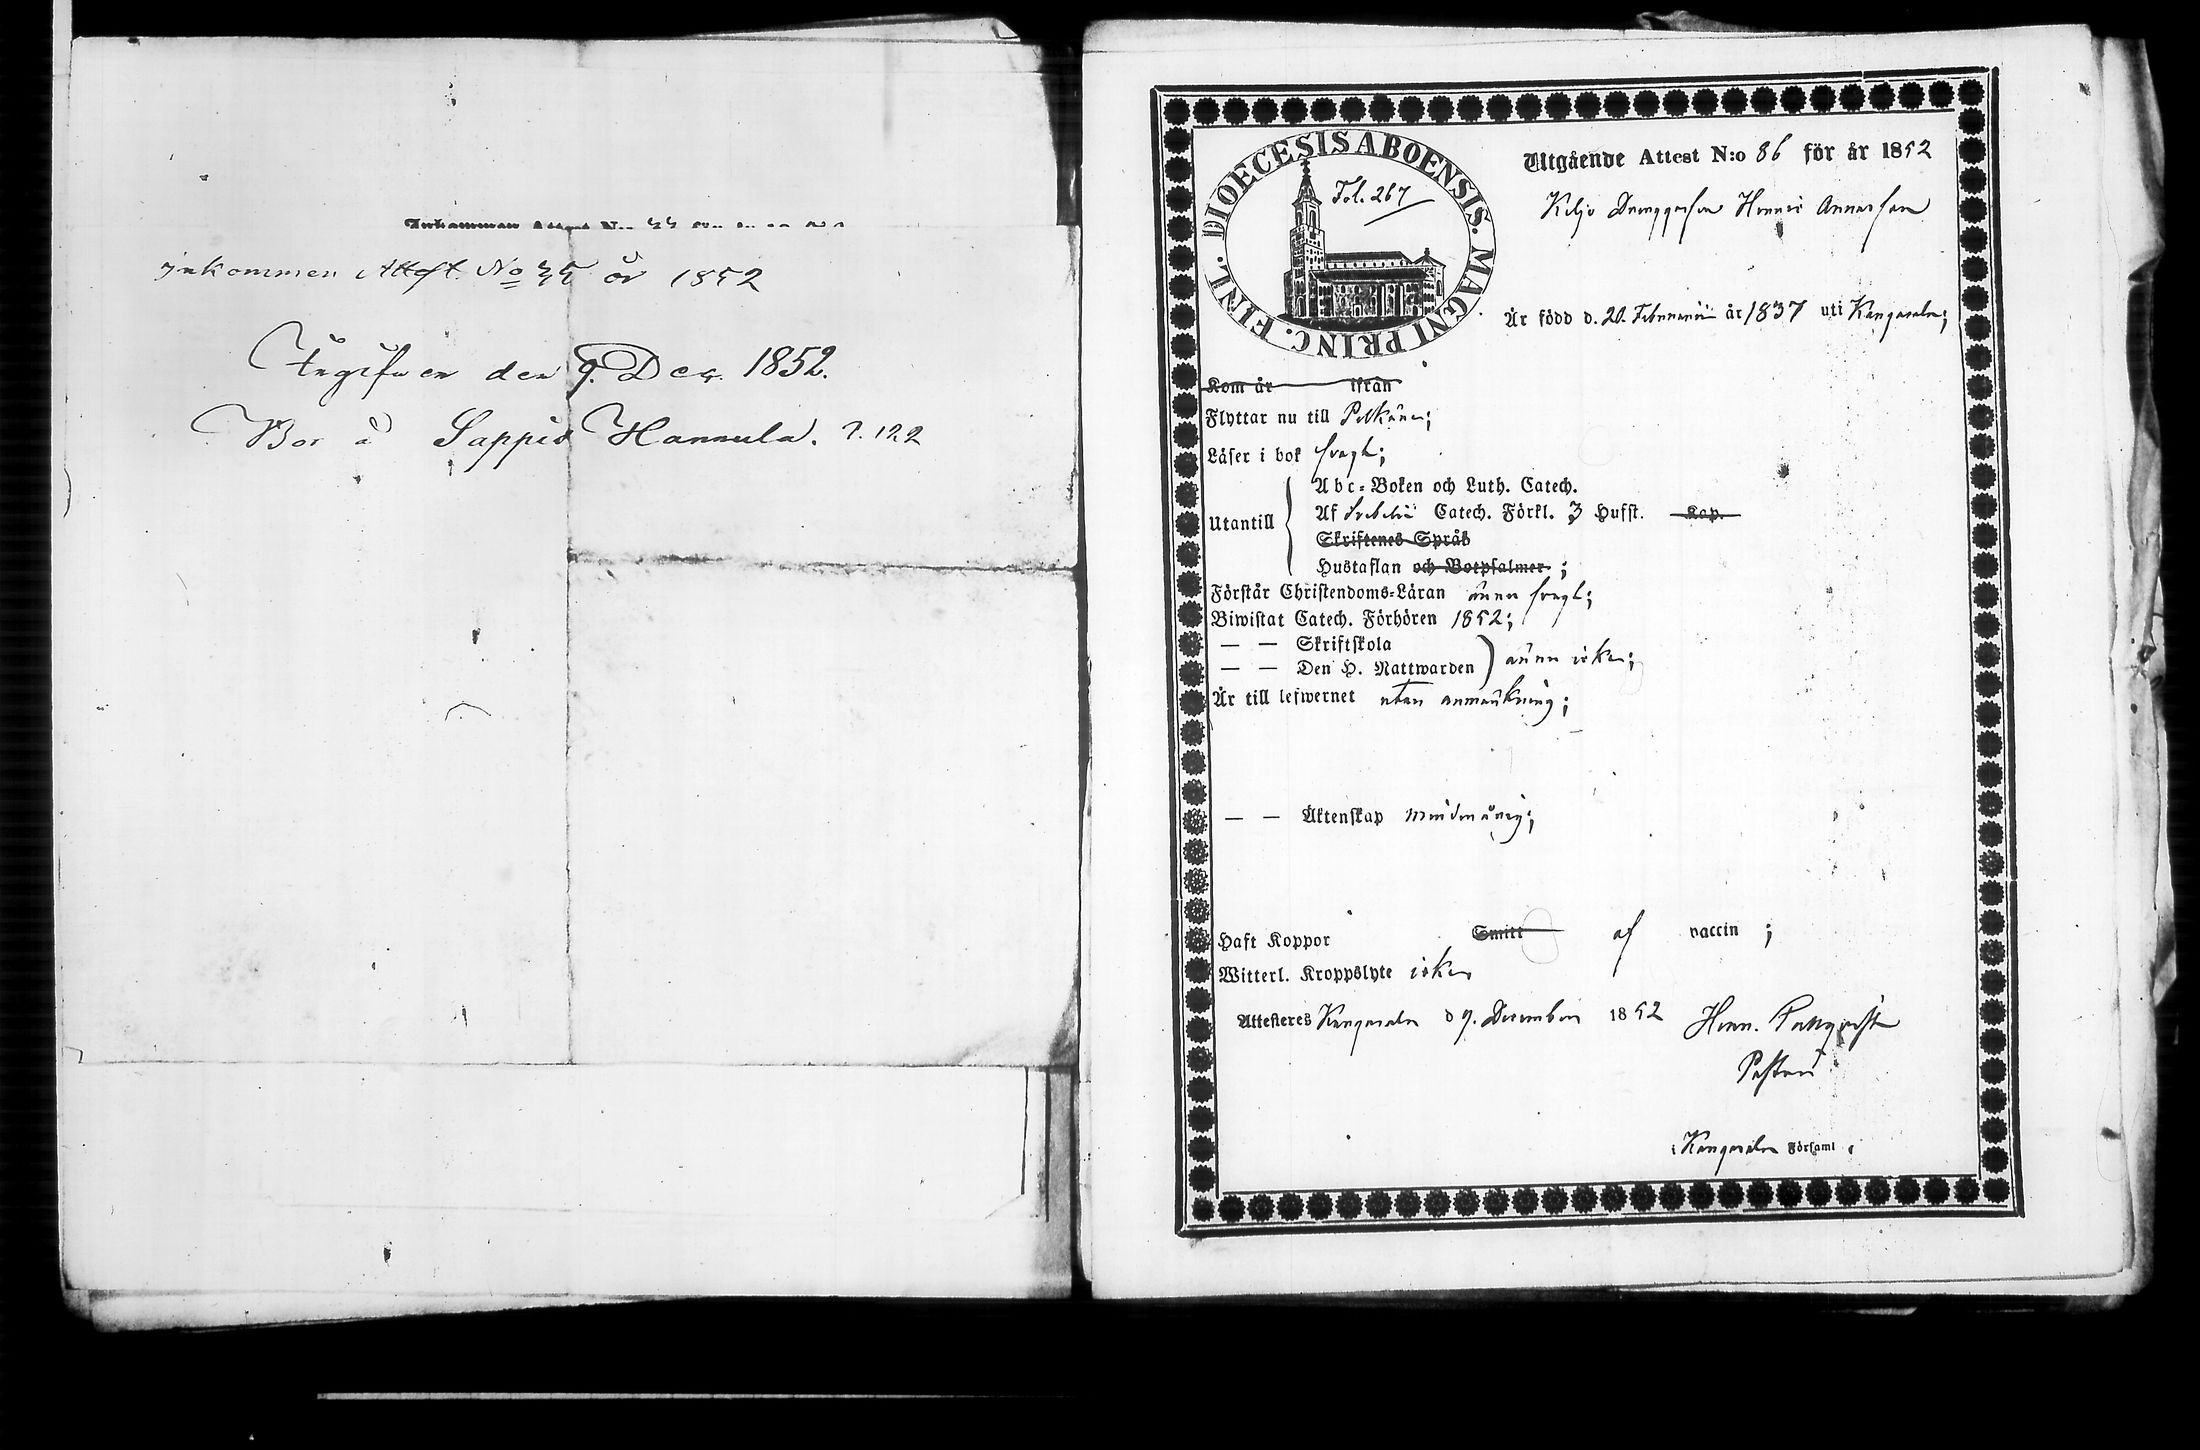 inkommen Attest No 45 år 1852
Ingifven den 9. Dec. 1852.
Bor å Sappis Hannula. P. 122
DIOECESIS ABOENSIS. MAGNI PRINC. FINL.
Fol. 267
Utgående Attest N:o 86 för år 1852
Henric Annasson
Är född d. 20. Februarii år 1837 uti Kangasala;
Kom år ifrån
Flyttar nu till Pelkäne;
Läser i bok svagt;
Utantill
Abc-Boken och Luth. Catech.
Af Svebelii Catech. Förkl. 3 Hufst. Kap.
Skriftenes Språk
Hustaflan och Botpsalmer ;
Förstår Christendoms-Läran ännu svagt;
Biwistat Catech. Förhören 1852;
— — Skriftskola
— — Den H. Nattwarden ännu icke;
Är till lefwernet utan anmärkning;
— — Äktenskap minderårig;
Haft Koppor Smitt af vaccin ;
Witterl. Kroppslyte icke
Attesteres Kangasala d 9. December 1852 Henr.
Pastor
i Kangasala Församl.